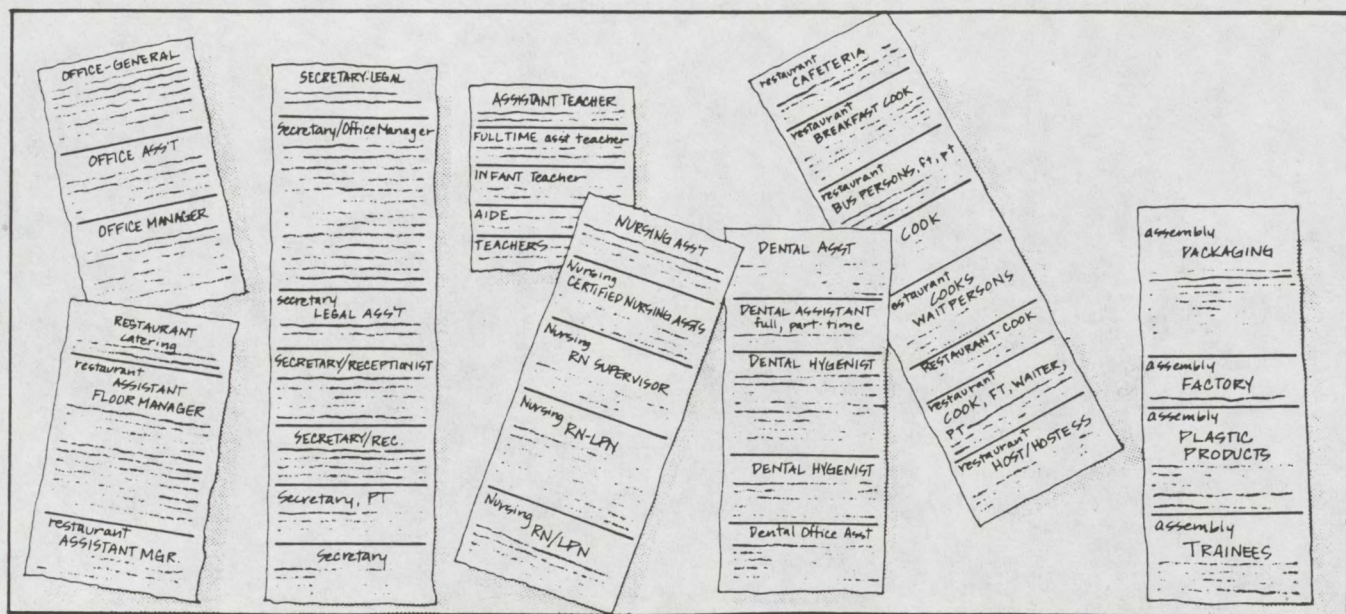 OFFICE-GENERAL
OFFICE ASS'T
OFFICE MANAGER
RESTAURANT
catering
restaurant
ASSISTANT
FLOOR MANAGER
restaurant
ASSISTANT MGR.
SECRETARY-LEGAL
Secretary/Office Manager
secretary
LEGAL ASS'T
SECRETARY/RECEPTIONIST
SECRETARY/REC.
Secretary, PT
Secretary
ASSISTANT TEACHER
FULL TIME asst teacher
INFANT Teacher
AIDE
TEACHERS
NURSING ASS'T
Nursing
CERTIFIED NURSING ASSTS
Nursing
RN SUPERVISOR
Nursing
RN-LPN
Nursing
RN/LPN
DENTAL ASST
DENTAL ASSISTANT
full, part time
DENTAL HYGENIST
DENTAL HYGENIST
Dental Office Asst
restaurant
CAFETERIA
restaurant
BREAKFAST COOK
restaurant
BUS PERSONS, ft, pt
COOK
estaurant
COOKS
WAITPERSONS
RESTAURANT-COOK
restaurant
COOK, FT, WAITER,
PT
restaurant
HOST/HOSTESS
assembly
PACKAGING
assembly
FACTORY
assembly
PLASTIC
PRODUCTS
assembly
TRAINEES